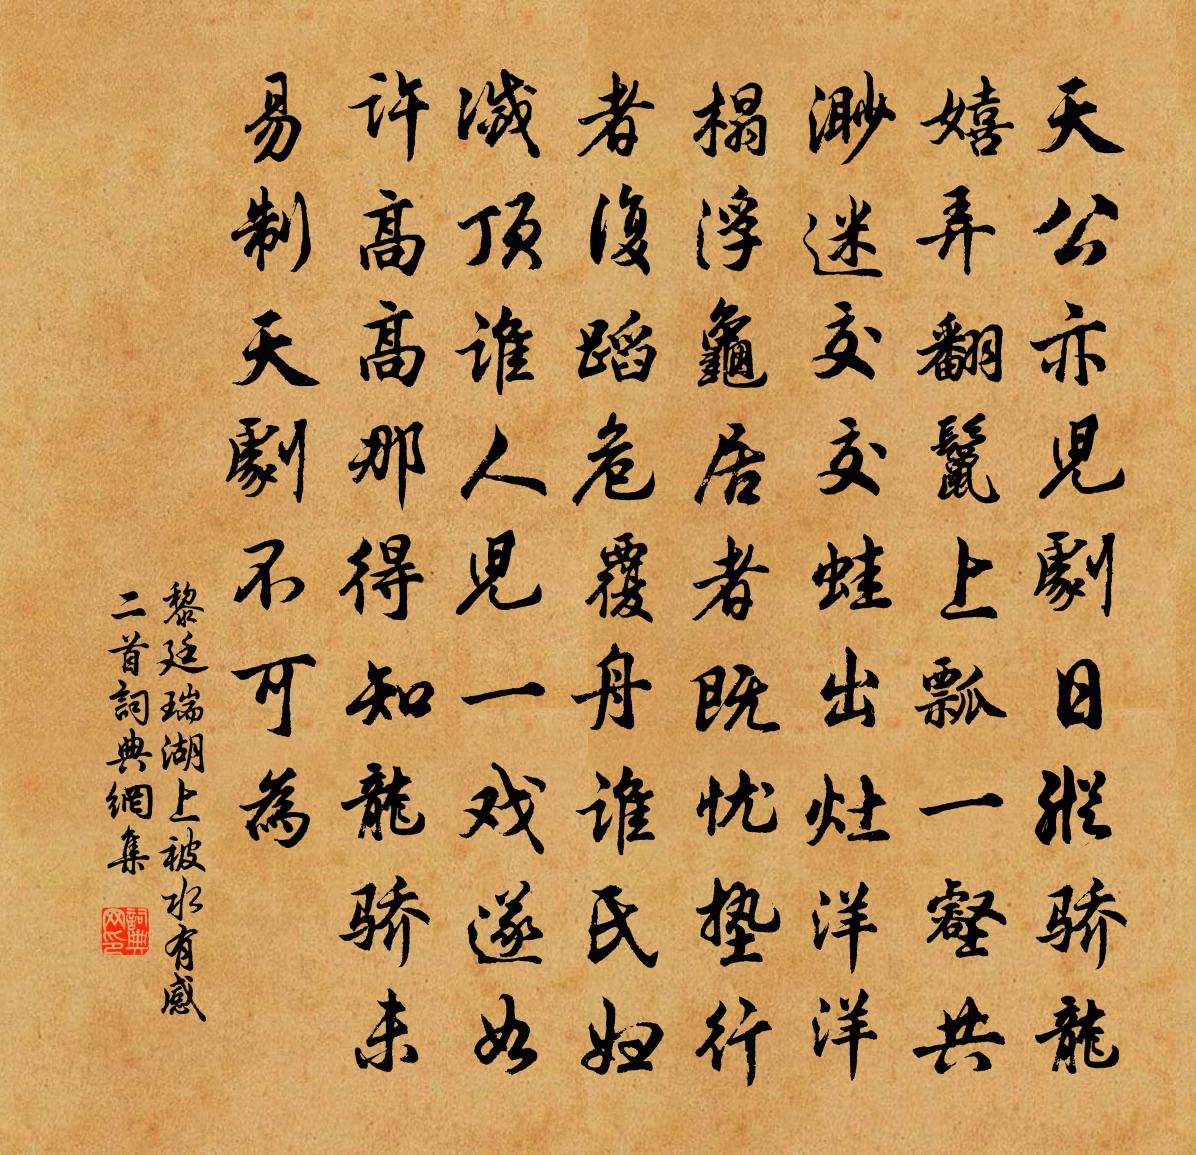 天公亦児劇日縱骄龍
嬉弄翻鬣上瓢一壑共
渺迷交交蛙出灶洋洋
榻浮龜居者既忧墊行
者復蹈危覆舟谁民妇
滅顶谁人児一戏遂如
许高高那得知龍骄未
易制天劇不可為
黎廷瑞湖上被水有感
二首詞典網集
詞典网印